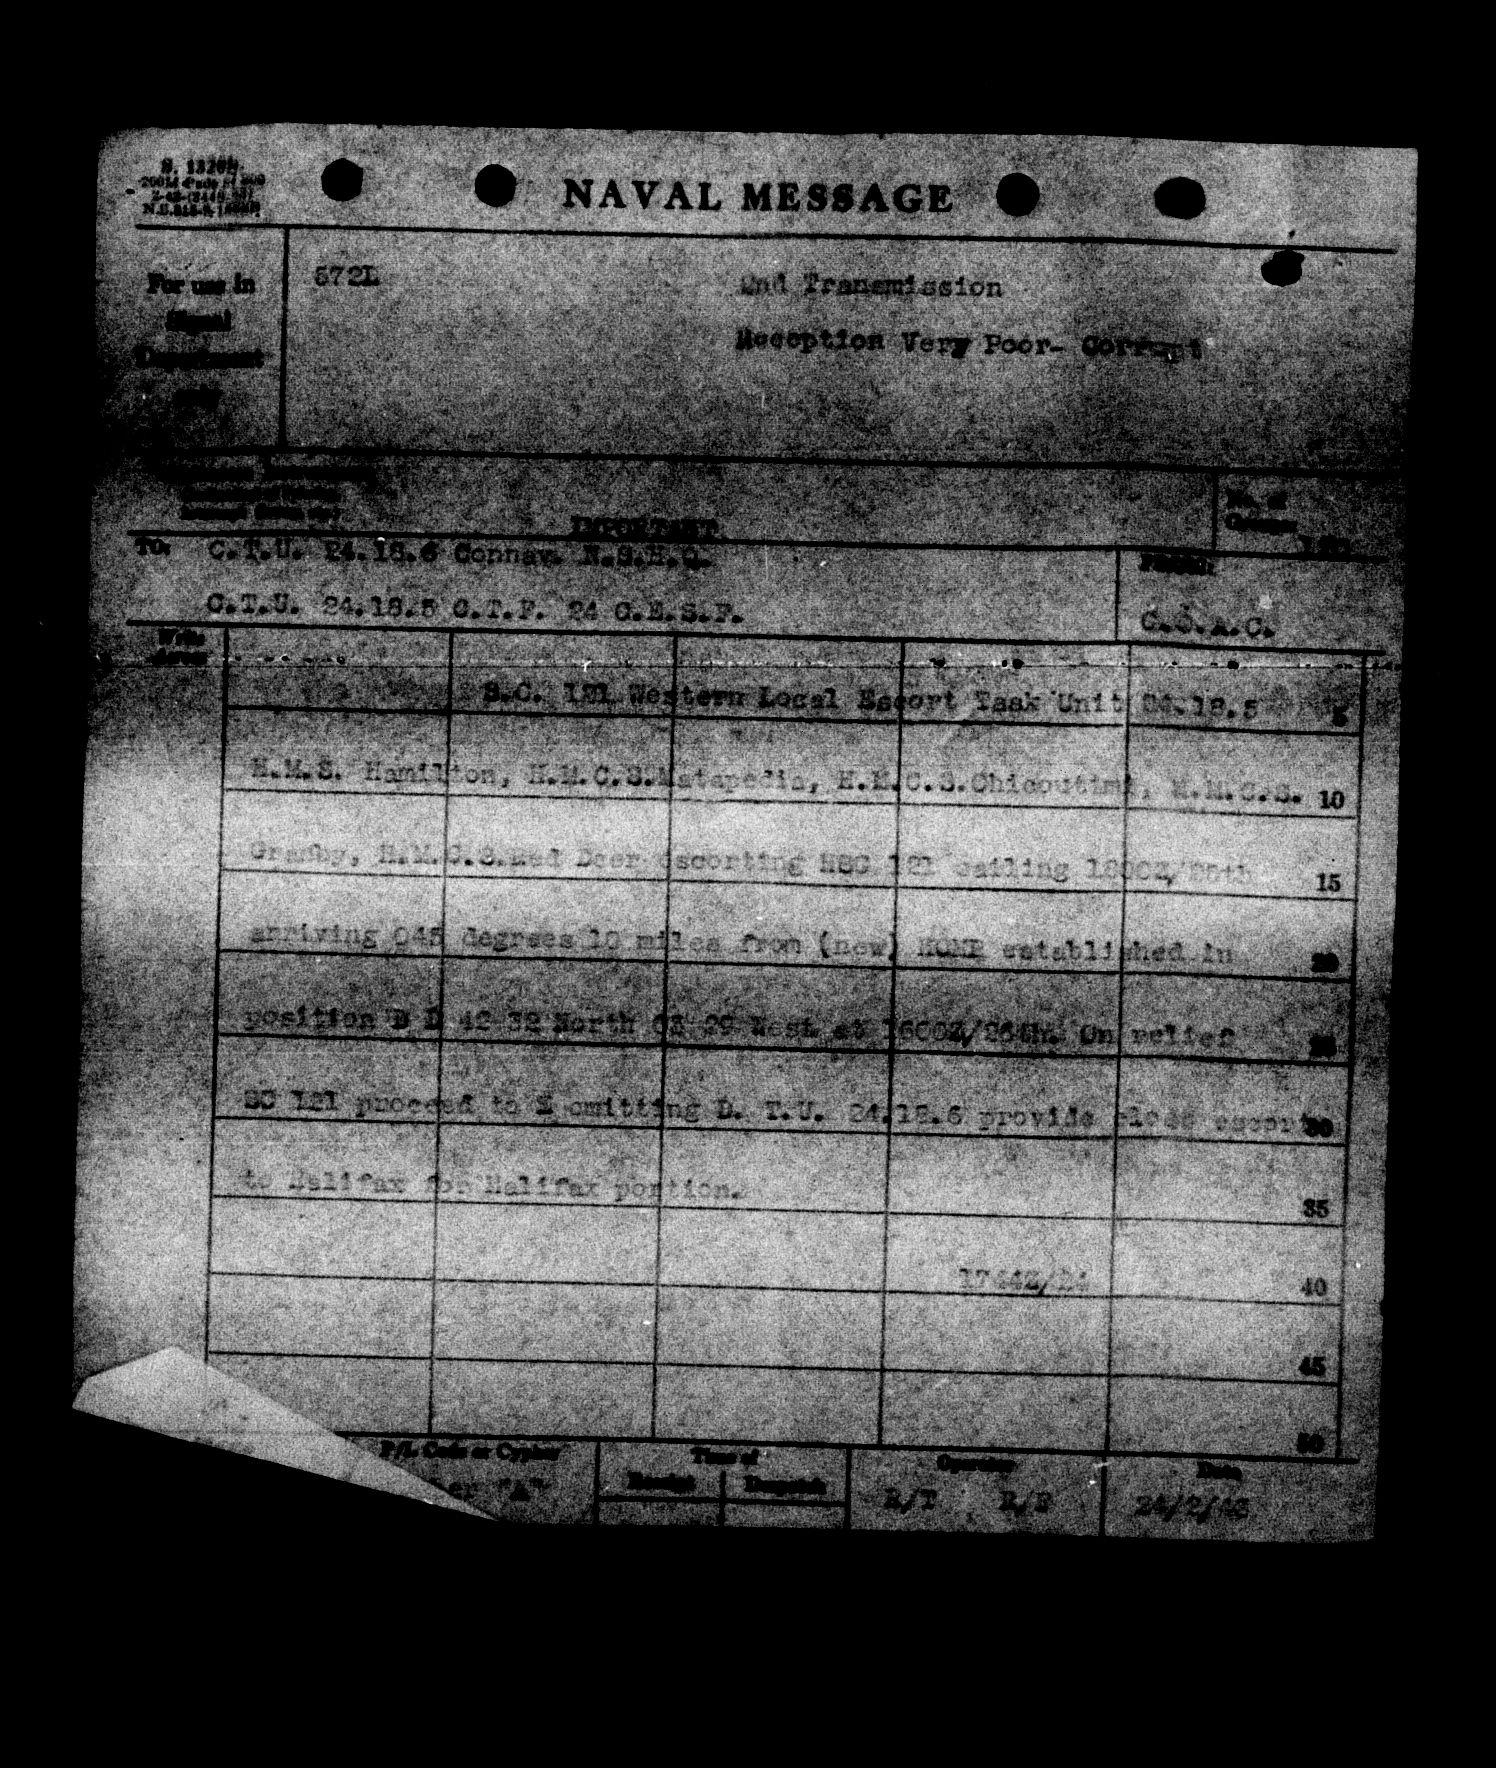 S. 1320b.
NAVAL MESSAGE
For use in
Signal
Department
only
572L
2nd Transmission
Reception Very Poor- Corrupt
IMPORTANT
No. of
Groups
TO: C.T.U. 24.18.6 Connav. N.S.H.Q.
FROM:
C.T.U. 24.18.5 C.T.F. 24 C.E.S.F.
Write
Across
S.C. 121 Western Local Escort Task Unit 24.18.5
5
H.M.S. Hamilton, H.M.C.S.Matapedia, H.M.C.S.Chicoutimi, H.M.C.S. 10
Granby, H.M.C.S.Red Deer escorting HSC 121 sailing 1800Z/25th 15
arriving 045 degrees 10 miles from (new) HOMP established in 20
position D D 42 32 North 63 29 West at 1600Z/26th. On relief 25
SC 121 proceed to E omitting D. T.U. 24.18.6 provide close escort 30
to Halifax for Halifax portion. 35
1744Z/24 40
45
50
P/L Code or Cypher
"A"
Time of
Receipt
Despatch
Operator
R/T
Date